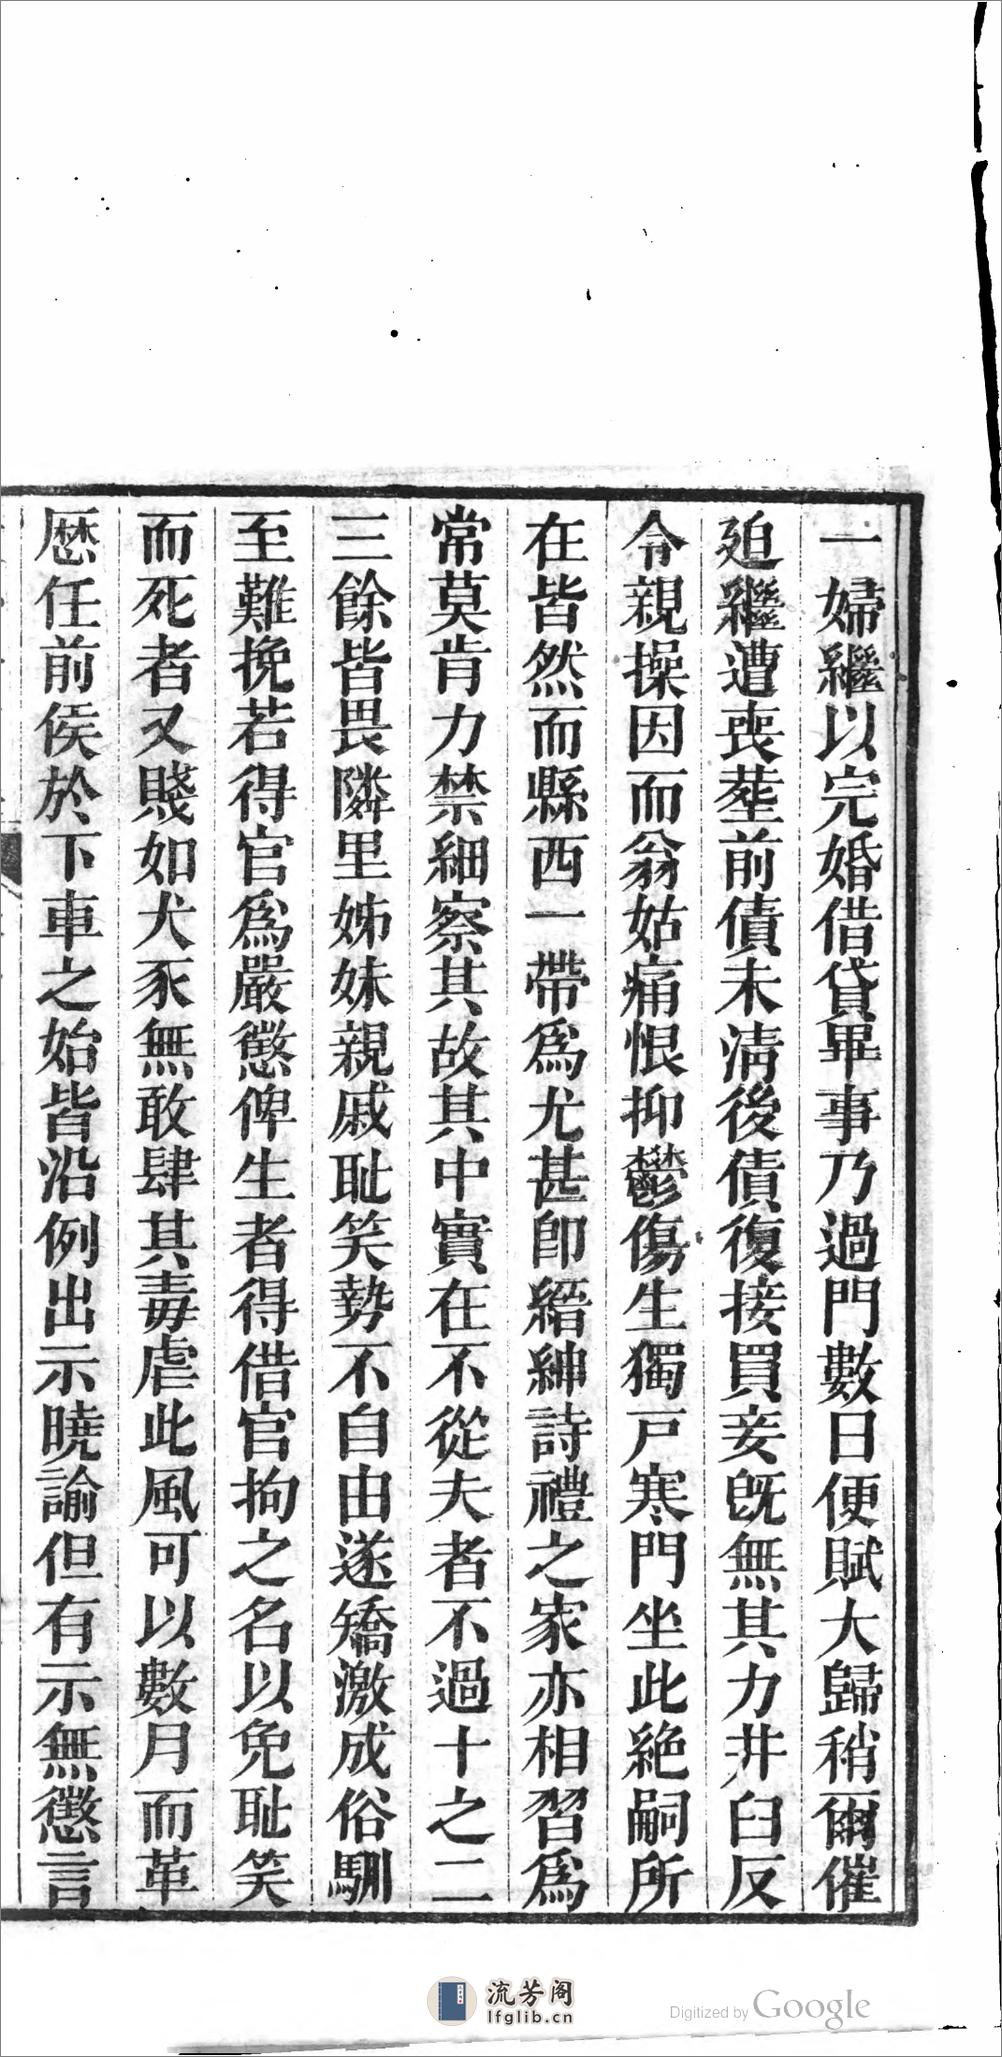 一婦繼以完婚借貸畢事乃過門數日便賦大歸稍爾催
廹繼遭喪塟前債未清後債復接買妾旣無其力井臼反
令親操因而翁姑痛恨抑鬱傷生獨戸寒門坐此絶嗣所
在皆然而縣西一帶爲尤甚卽縉紳詩禮之家亦相習爲
常莫肯力禁細察其故其中實在不從夫者不過十之二
三餘皆畏隣里姊妹親戚耻笑勢不自由遂矯激成俗馴
至難挽若得官爲嚴懲俾生者得借官拘之名以免耻笑
而死者又賤如犬豕無敢肆其毒虐此風可以數月而革
厯任前侯於下車之始皆沿例出示曉諭但有示無懲言
流芳阁
lfglib.cn
Digitized by Google